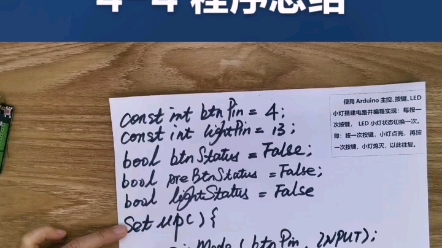 4-4 程序总结
使用 Arduino 主控, 按键, LED
小灯搭建电路并编程实现：每按一
次按键， LED 小灯状态切换一次。
即：按一次按键，小灯点亮，再按
一次按键，小灯熄灭，以此往复。
const int btnPin = 4;
const int lightPin = 13;
bool btnStatus = False;
bool preBtnStatus = False;
bool lightStatus = False
Set up() {
Mode (btnPin, INPUT);